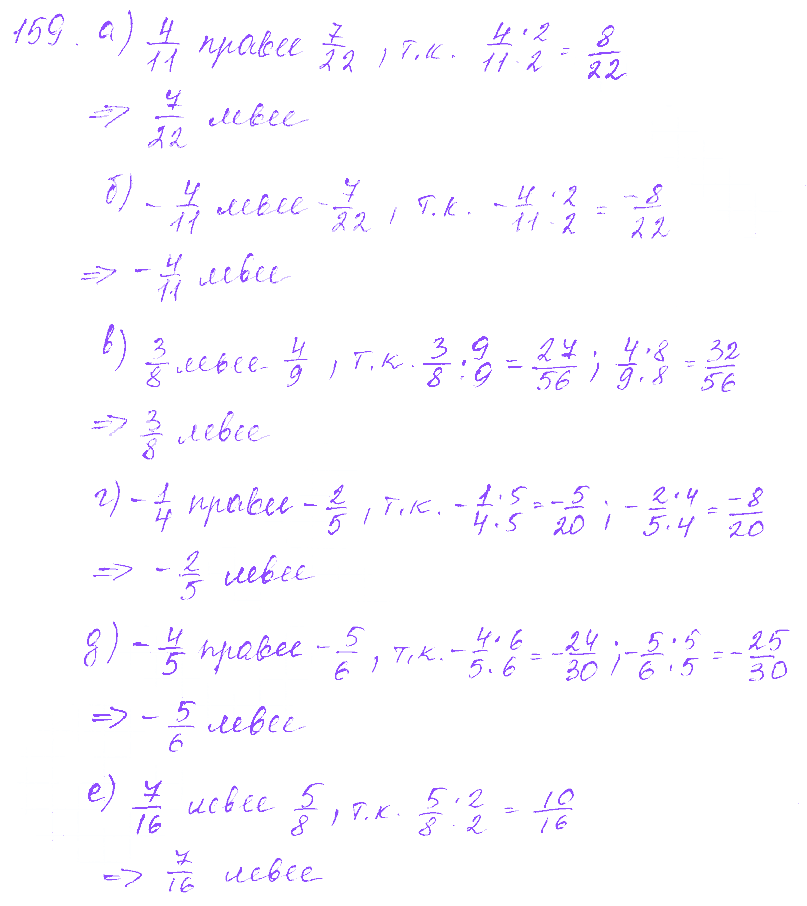 159. а) 4/11 правее 7/22, т.к. 4·2/11·2 = 8/22
=> 7/22 левее
б) -4/11 левее -7/22, т.к. -4·2/11·2 = -8/22
=> -4/11 левее
в) 3/8 левее 4/9, т.к. 3·9/8·9 = 27/56; 4·8/9·8 = 32/56
=> 3/8 левее
г) -1/4 правее -2/5, т.к. -1·5/4·5 = -5/20; -2·4/5·4 = -8/20
=> -2/5 левее
д) -4/5 правее -5/6, т.к. -4·6/5·6 = -24/30; -5·5/6·5 = -25/30
=> -5/6 левее
е) 7/16 левее 5/8, т.к. 5·2/8·2 = 10/16
=> 7/16 левее